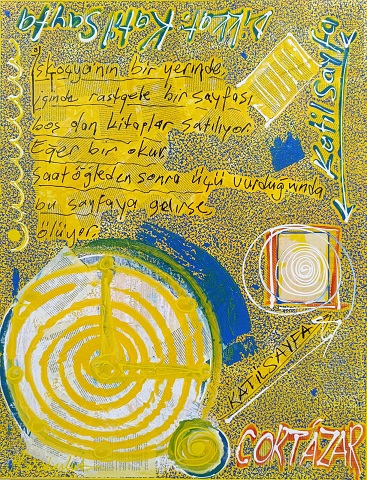 Dikkat: Katil Sayfa
Katil Sayfa
İskoçyanın bir yerinde,
içinde rastgele bir sayfası
boş olan kitaplar satılıyor.
Eğer bir okur
saat öğleden sonra üçü vurduğunda
bu sayfaya gelirse,
ölüyor.
KATİL SAYFA
CORTÁZAR